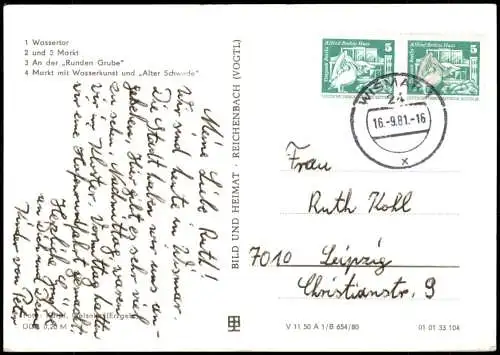 1 Wassertor
2 und 5 Markt
3 An der „Runden Grube"
4 Markt mit Wasserkunst und „Alter Schwede"
Meine Liebe Ruth!
Wir sind heute in Wismar.
Die Stadt haben wir uns an-
gesehen. Hier gibt es sehr viel
zu sehn. Nachmittag waren
wir im Kloster. Vormittag hatten
wir eine Hafenrundfahrt gemacht.
Herzliche Grüße
an Dich und Deine
Kinder von Peter
DDR 0,20 M
BILD UND HEIMAT · REICHENBACH (VOGTL)
Alfred Brehm Haus
5
Alfred Brehm Haus
5
WISMAR
24
16.-9.81.-16
x
Frau
Ruth Kohl
7010 Leipzig
Christianstr. 9
V 11 50 A 1/B 654/80
01 01 33 104